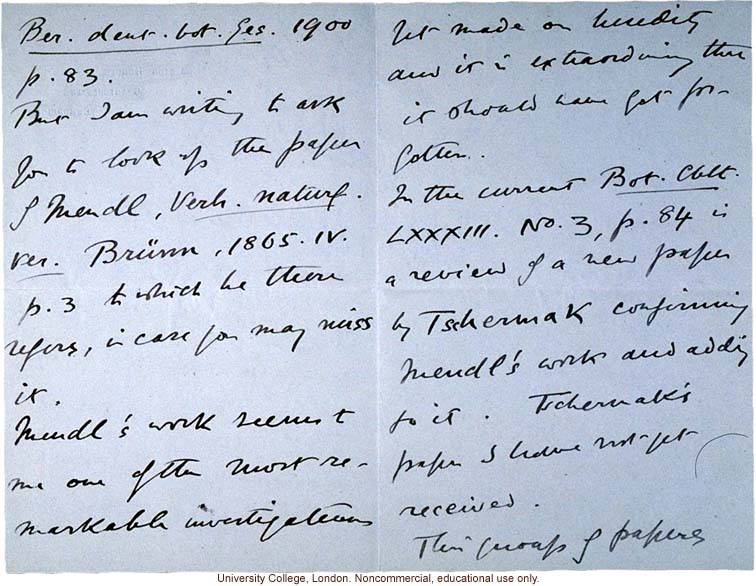 Ber. deut. bot. Ges. 1900
p. 83.
But I am writing to ask
you to look up the paper
of Mendl, Verh. naturf.
Ver. Brünn, 1865. IV.
p. 3 to which he there
refers, in case you may miss
it.
Mendl's work seems to
me one of the most re-
markable investigations
yet made on heredity
and it is extraordinary that
it should have got for-
gotten.
In the current Bot. Cblt.
LXXXIII. No. 3, p. 84 is
a review of a new paper
by Tschermak confirming
Mendl's work and adding
to it. Tschermak's
paper I have not yet
received.
This group of papers
University College, London. Noncommercial, educational use only.